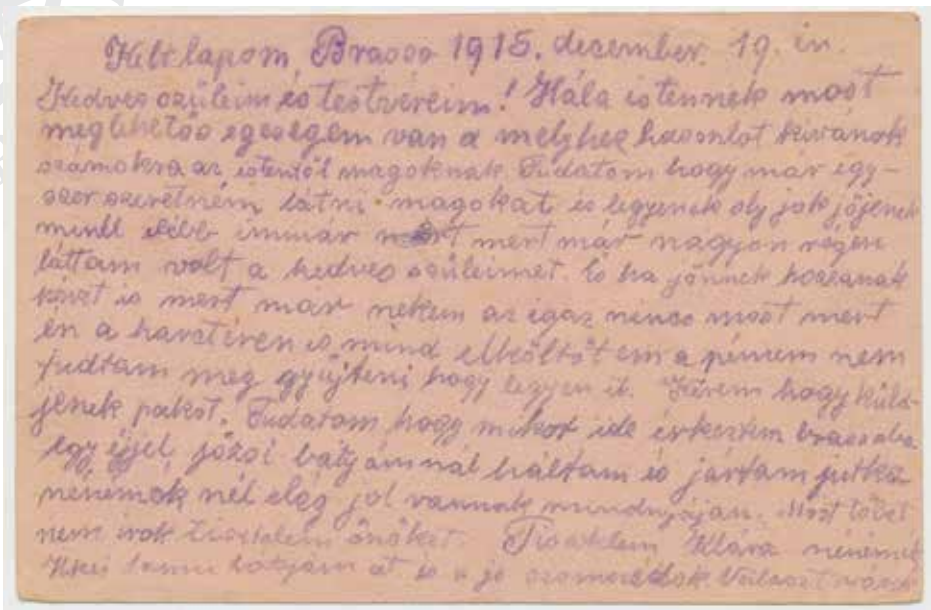 Kelt lapom, Brasso 1915. dezember. 19. in.
Kedves szüleim és testvéreim! Hála istennek most
meglehetős egeségem van a melyhez hasonlót kivánok
számokra az istentől magoknak. Tudatom hogy már egy-
szer szeretném látni magokat és legyenek oly jok jöjenek
minél elébb immár mert már nagyon régen
láttam volt a kedves szüleimet. És ha jönnek hozzanak
pénzt is mert már nekem az igaz nincs most mert
én a harctéren is mind elköltöttem a pénzem nem
tudtam meg gyüjteni hogy legyen it. Kérem hogy küld-
jenek pakot. Tudatom hogy mikor ide érkeztem brassoba
egy éjjel józsi bátyámnál háltam és jártam jutka
nénémek nél elég jol vannak mindnyáján. Most tövet
nem irok tisztelem önöket. Tisztelem Klára nénémet
bátyám at és a jo szomszédok. Választ várok